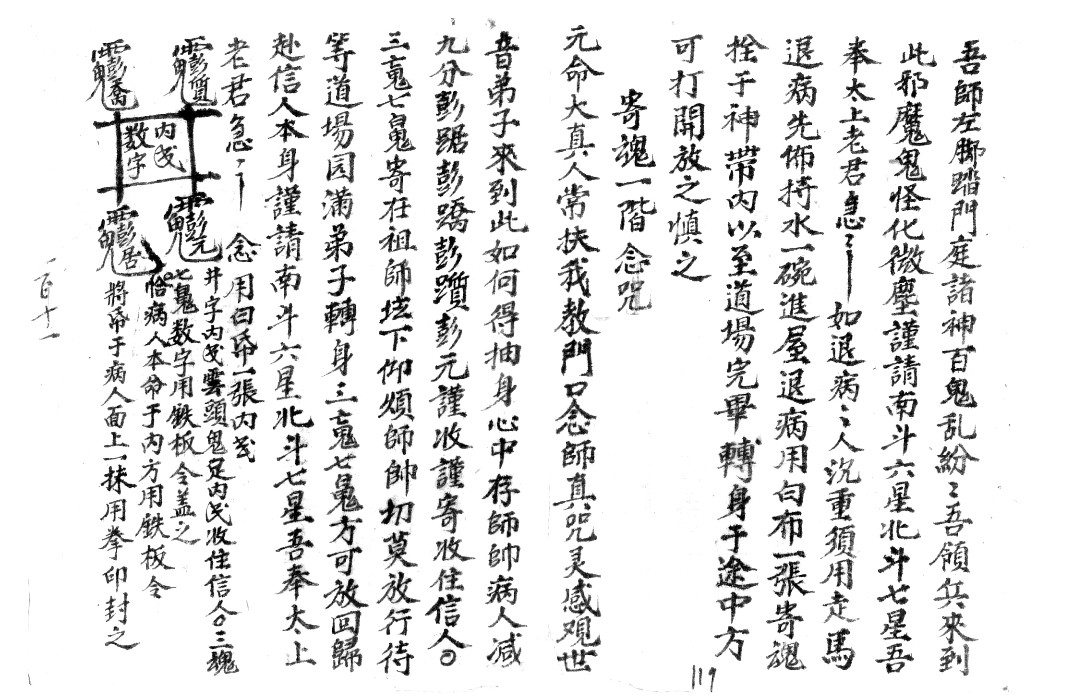 吾師左脚踏門庭諸神百鬼乱紛〻吾領兵來到
此邪魔鬼怪化微塵謹請南斗六星北斗七星吾
奉太上老君急〻 如退病〻人沉重須用走馬
退病先佈持水一碗進屋退病用白布一張寄魂
拴于神帶内以至道場完畢轉身于途中方
可打開放之慎之
寄魂一階念咒
元命大真人常扶我教門口念師真咒灵感观世
音弟子來到此如何得抽身心中存師帥病人减
九分彭踞彭蹻彭躓彭元謹收謹寄收住信人〇
三䰟七䰟寄在祖師坛下仰煩師帥切莫放行待
等道場园滿弟子轉身三䰟七䰟方可放回歸
赴信人本身謹請南斗六星北斗七星吾奉太上
老君急〻 念用白帋一張内
井字内 雲頭鬼足内 收住信人〇三魂
七 数字用鉄板令盖之
恰病人本命于内方用鉄板令
將帋于病人面上一抹用拳印封之
彭質
彭喬
内
数字
彭元
彭居
一百十一
119